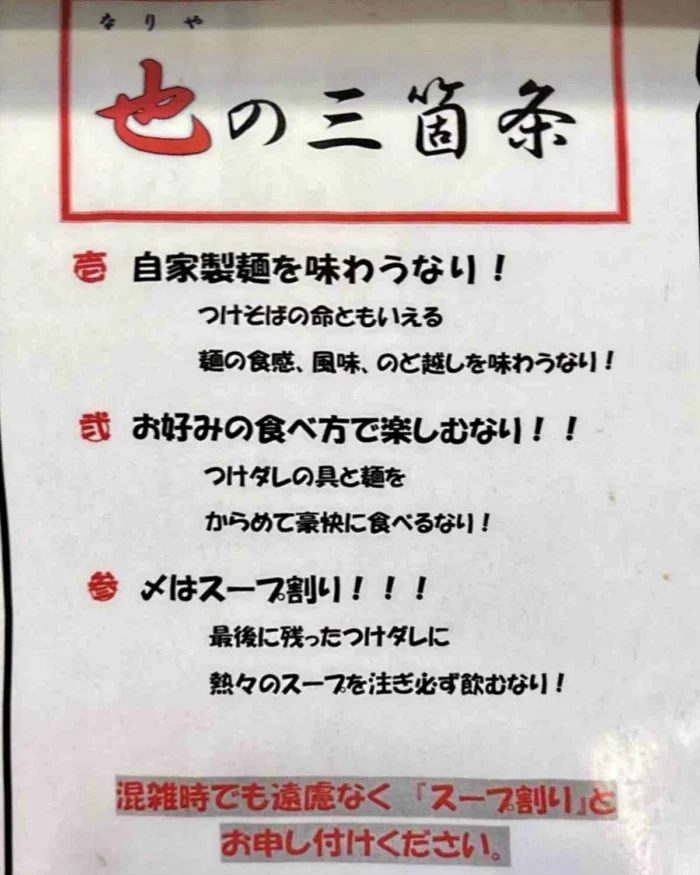 なりや
也の三箇条
壱 自家製麺を味わうなり！
つけそばの命ともいえる
麺の食感、風味、のど越しを味わうなり！
弐 お好みの食べ方で楽しむなり！！
つけダレの具と麺を
からめて豪快に食べるなり！
参 〆はスープ割り！！！
最後に残ったつけダレに
熱々のスープを注ぎ必ず飲むなり！
混雑時でも遠慮なく『スープ割り』と
お申し付けください。